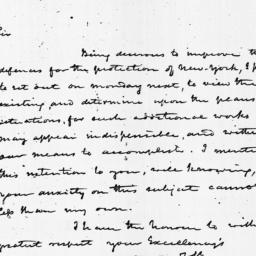 Sir
Being desirous to improve t
defences for the protection of New-York, I p
to set out on monday next, to view the
existing and determine upon the plans
situations, for such additional works
may appear indispensible, and with
our means to accomplish. I ment
this intention to you, well knowing,
your anxiety on this subject cannot
less than my own.
I have the honour to with
great respect your Excellency's